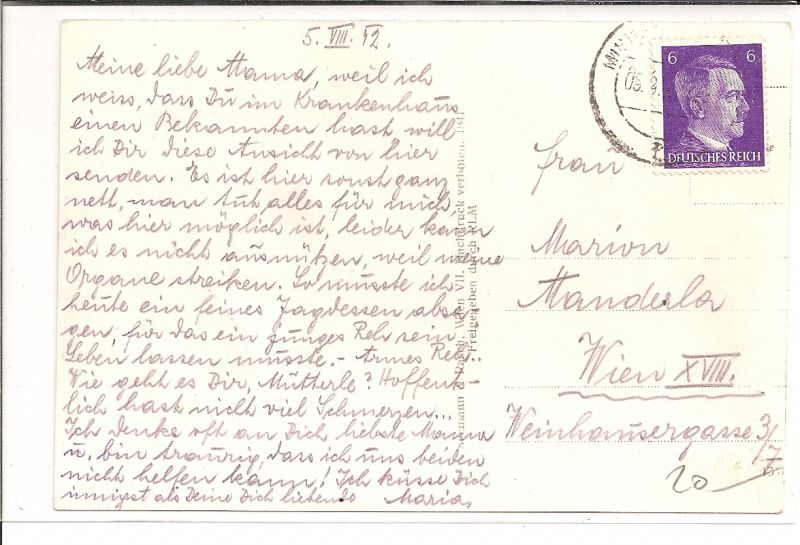 5. VIII. 42.
Meine liebe Mama, weil ich
weiss, dass Du im Krankenhaus
einen Bekannten hast will
ich Dir diese Ansicht von hier
senden. Es ist hier sonst ganz
nett, man tut alles für mich
was hier möglich ist, leider kann
ich es nicht ausnützen, weil meine
Organe streiken. So musste ich
heute ein feines Jagdessen absa-
gen, für das ein junges Reh sein
Leben lassen musste. - Armes Reh..
Wie geht es Dir, Mütterle? Hoffent-
lich hast nicht viel Schmerzen...
Ich denke oft an Dich liebste Mama
u. bin traurig, dass ich uns beiden
nicht helfen kann! Ich küsse Dich
innigst als Deine Dich liebende Maria,
Wien VII. Nachdruck verboten.
Freigegeben durch RLM
6 6
DEUTSCHES REICH
Frau
Marion
Manderla
Wien XVIII.
Weinhausergasse 3/
17
20